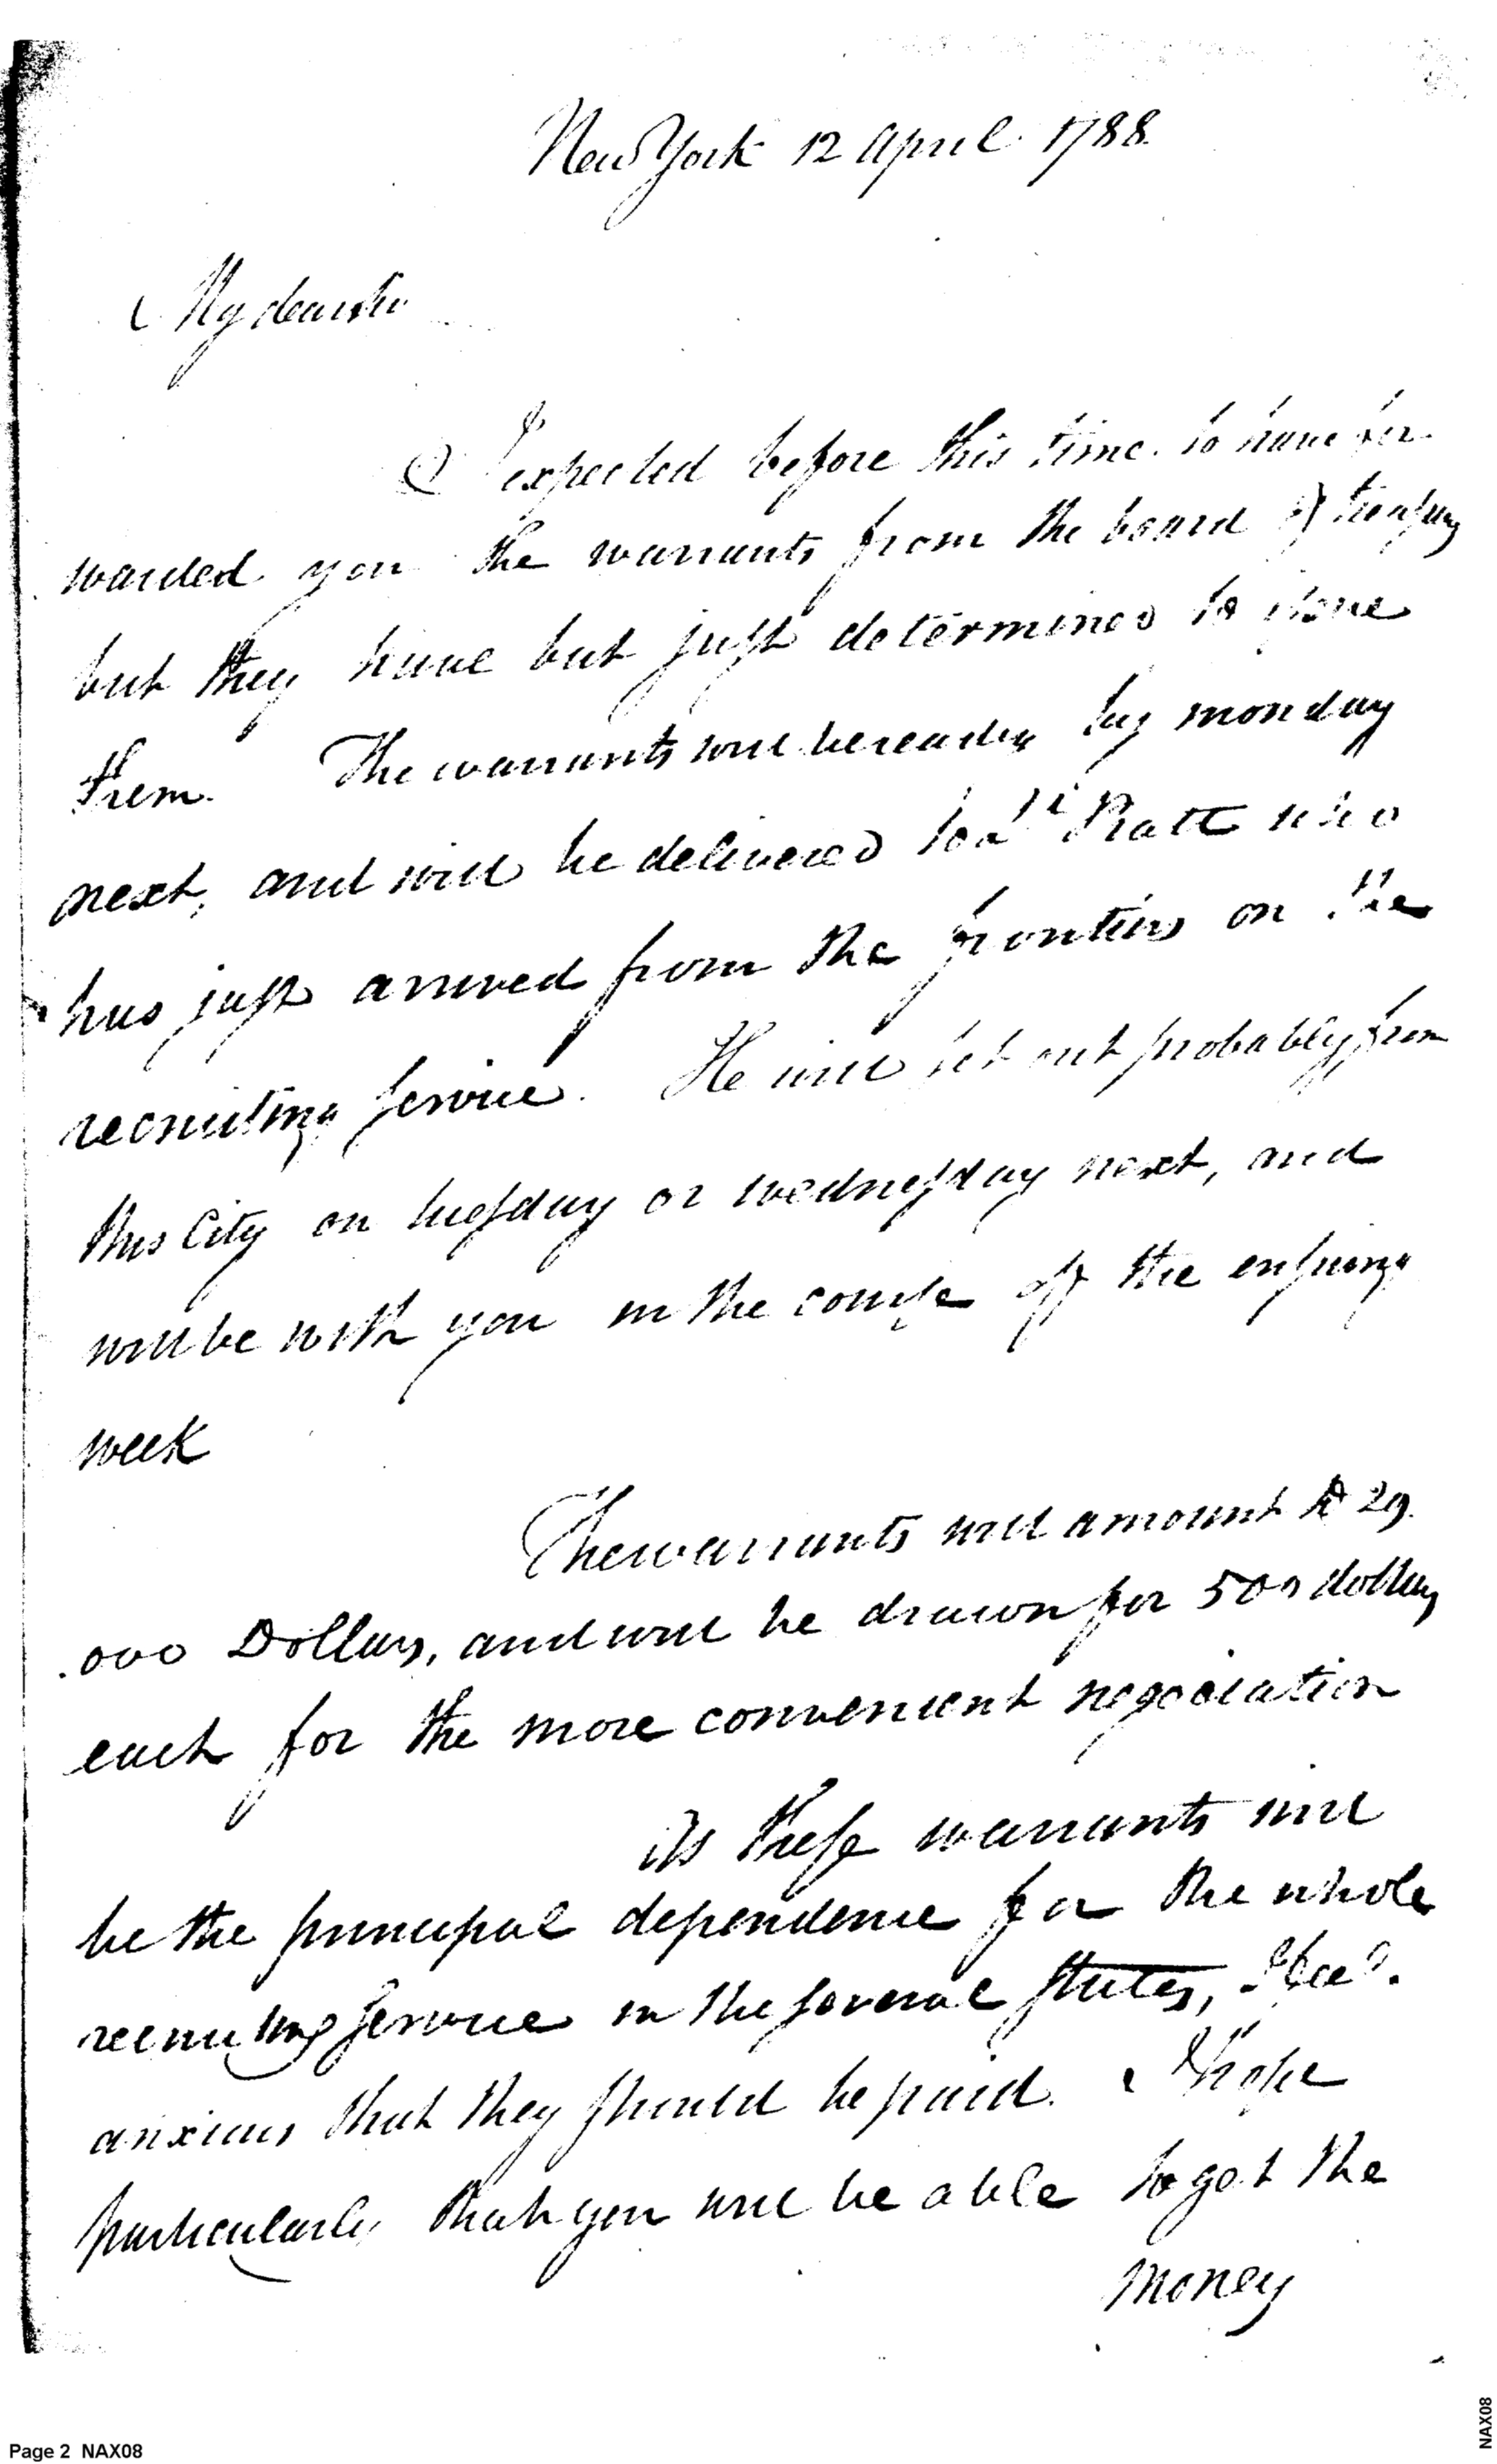 New York 12 April 1788.
My dear sir
I expected before this time to have for
warded you the warrants from the board of treasury
but they have but just determined to issue
them. The warrants will be ready by monday
next, and will be delivered to Lt Pratt who
has just arrived from the frontiers on the
recruiting service. He will set out probably from
this City on tuesday or wednesday next, and
will be with you in the course of the ensuing
week
The warrants will amount to 29.
.000 Dollars, and will be drawn for 500 dollars
each for the more convenient negociation
As these warrants will
be the principal dependence for the whole
recruiting service in the several states, I feel
anxious that they should be paid. I hope
particularly that you will be able to get the
money
Page 2 NAX08
NAX08